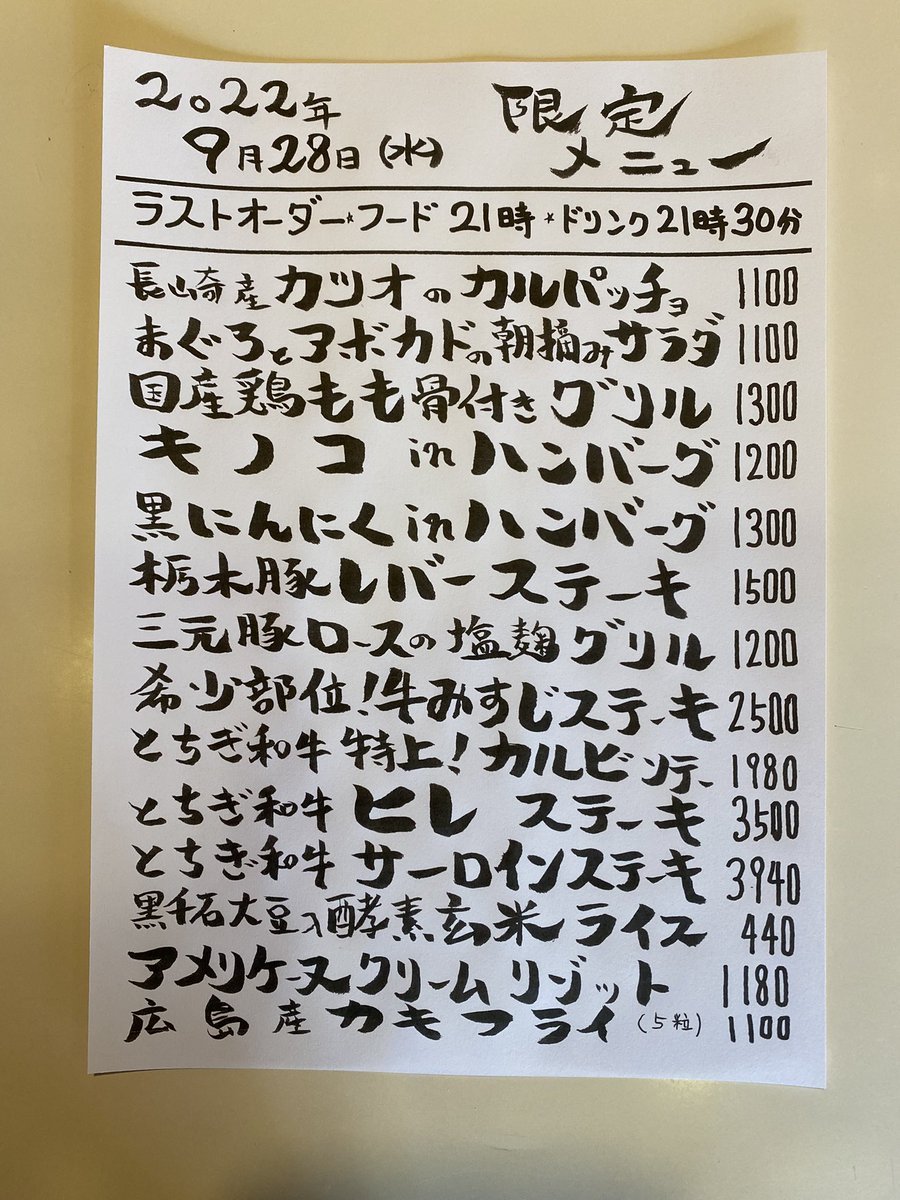 2022年
9月28日(水)
限定
メニュー
ラストオーダー*フード 21時*ドリンク21時30分
長崎産カツオのカルパッチョ 1100
まぐろとアボカドの朝摘みサラダ 1100
国産鶏もも骨付きグリル 1300
キノコ in ハンバーグ 1200
黒にんにく in ハンバーグ 1300
栃木豚レバーステーキ 1500
三元豚ロースの塩麹グリル 1200
希少部位!牛みすじステーキ 2500
とちぎ和牛特上!カルビソテー 1980
とちぎ和牛ヒレステーキ 3500
とちぎ和牛サーロインステーキ 3940
黒千石大豆入酵素玄米ライス 440
アメリケーヌクリームリゾット 1180
広島産カキフライ(5粒) 1100